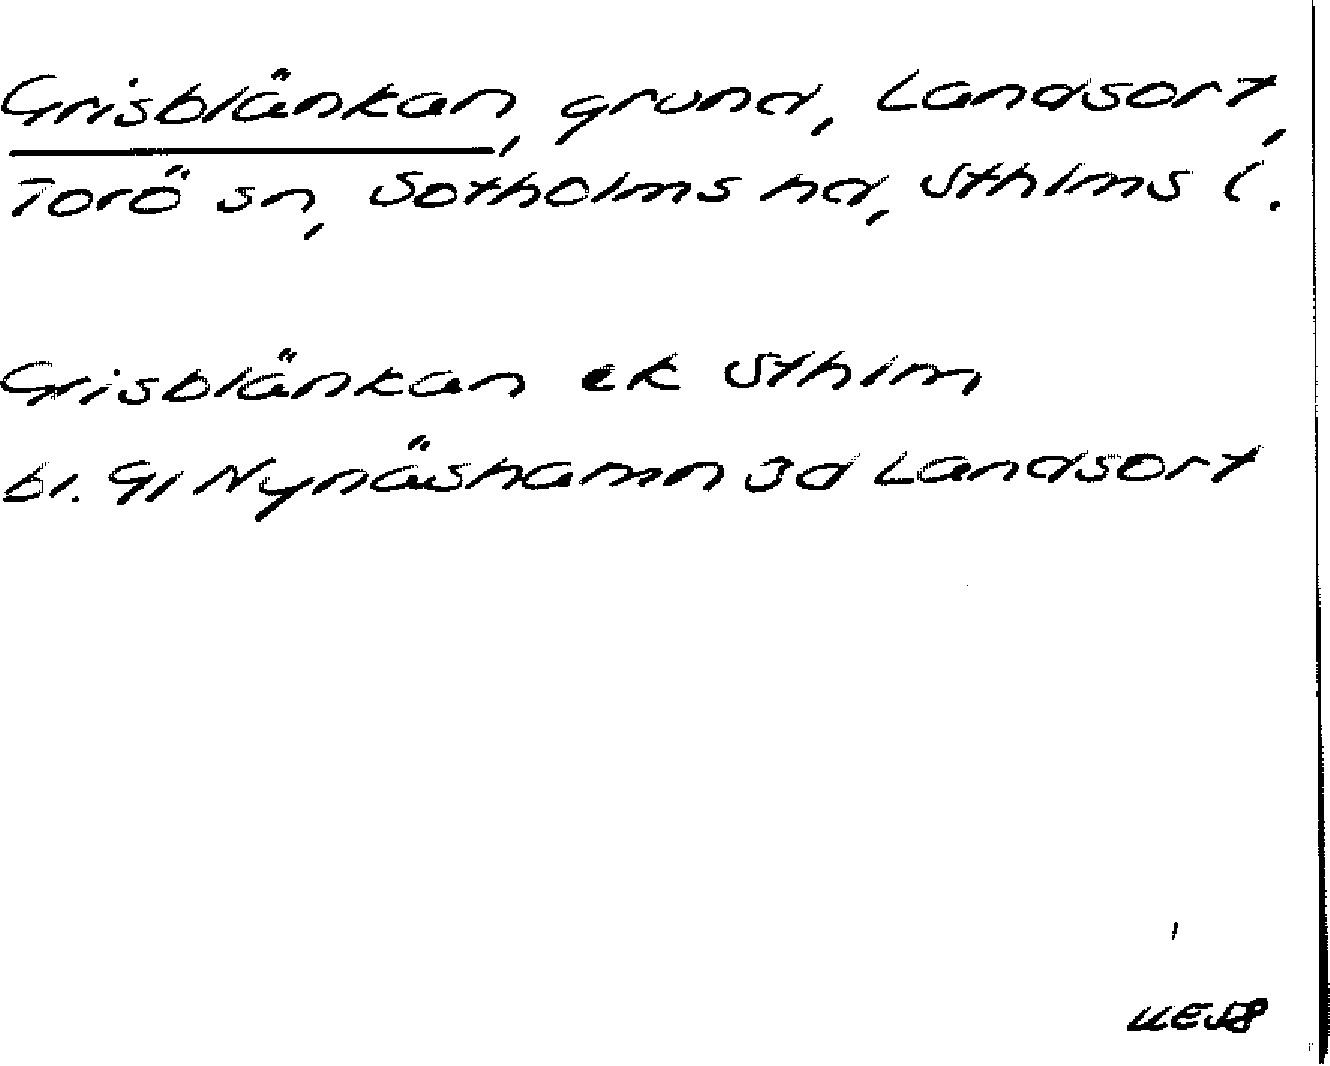 Grisblänkan, grund, Landsort,
Torö sn, Sotholms hd, Sthlms l.
Grisblänkan ek Sthlm
bl. 9I Nynäshamn 3d Landsort